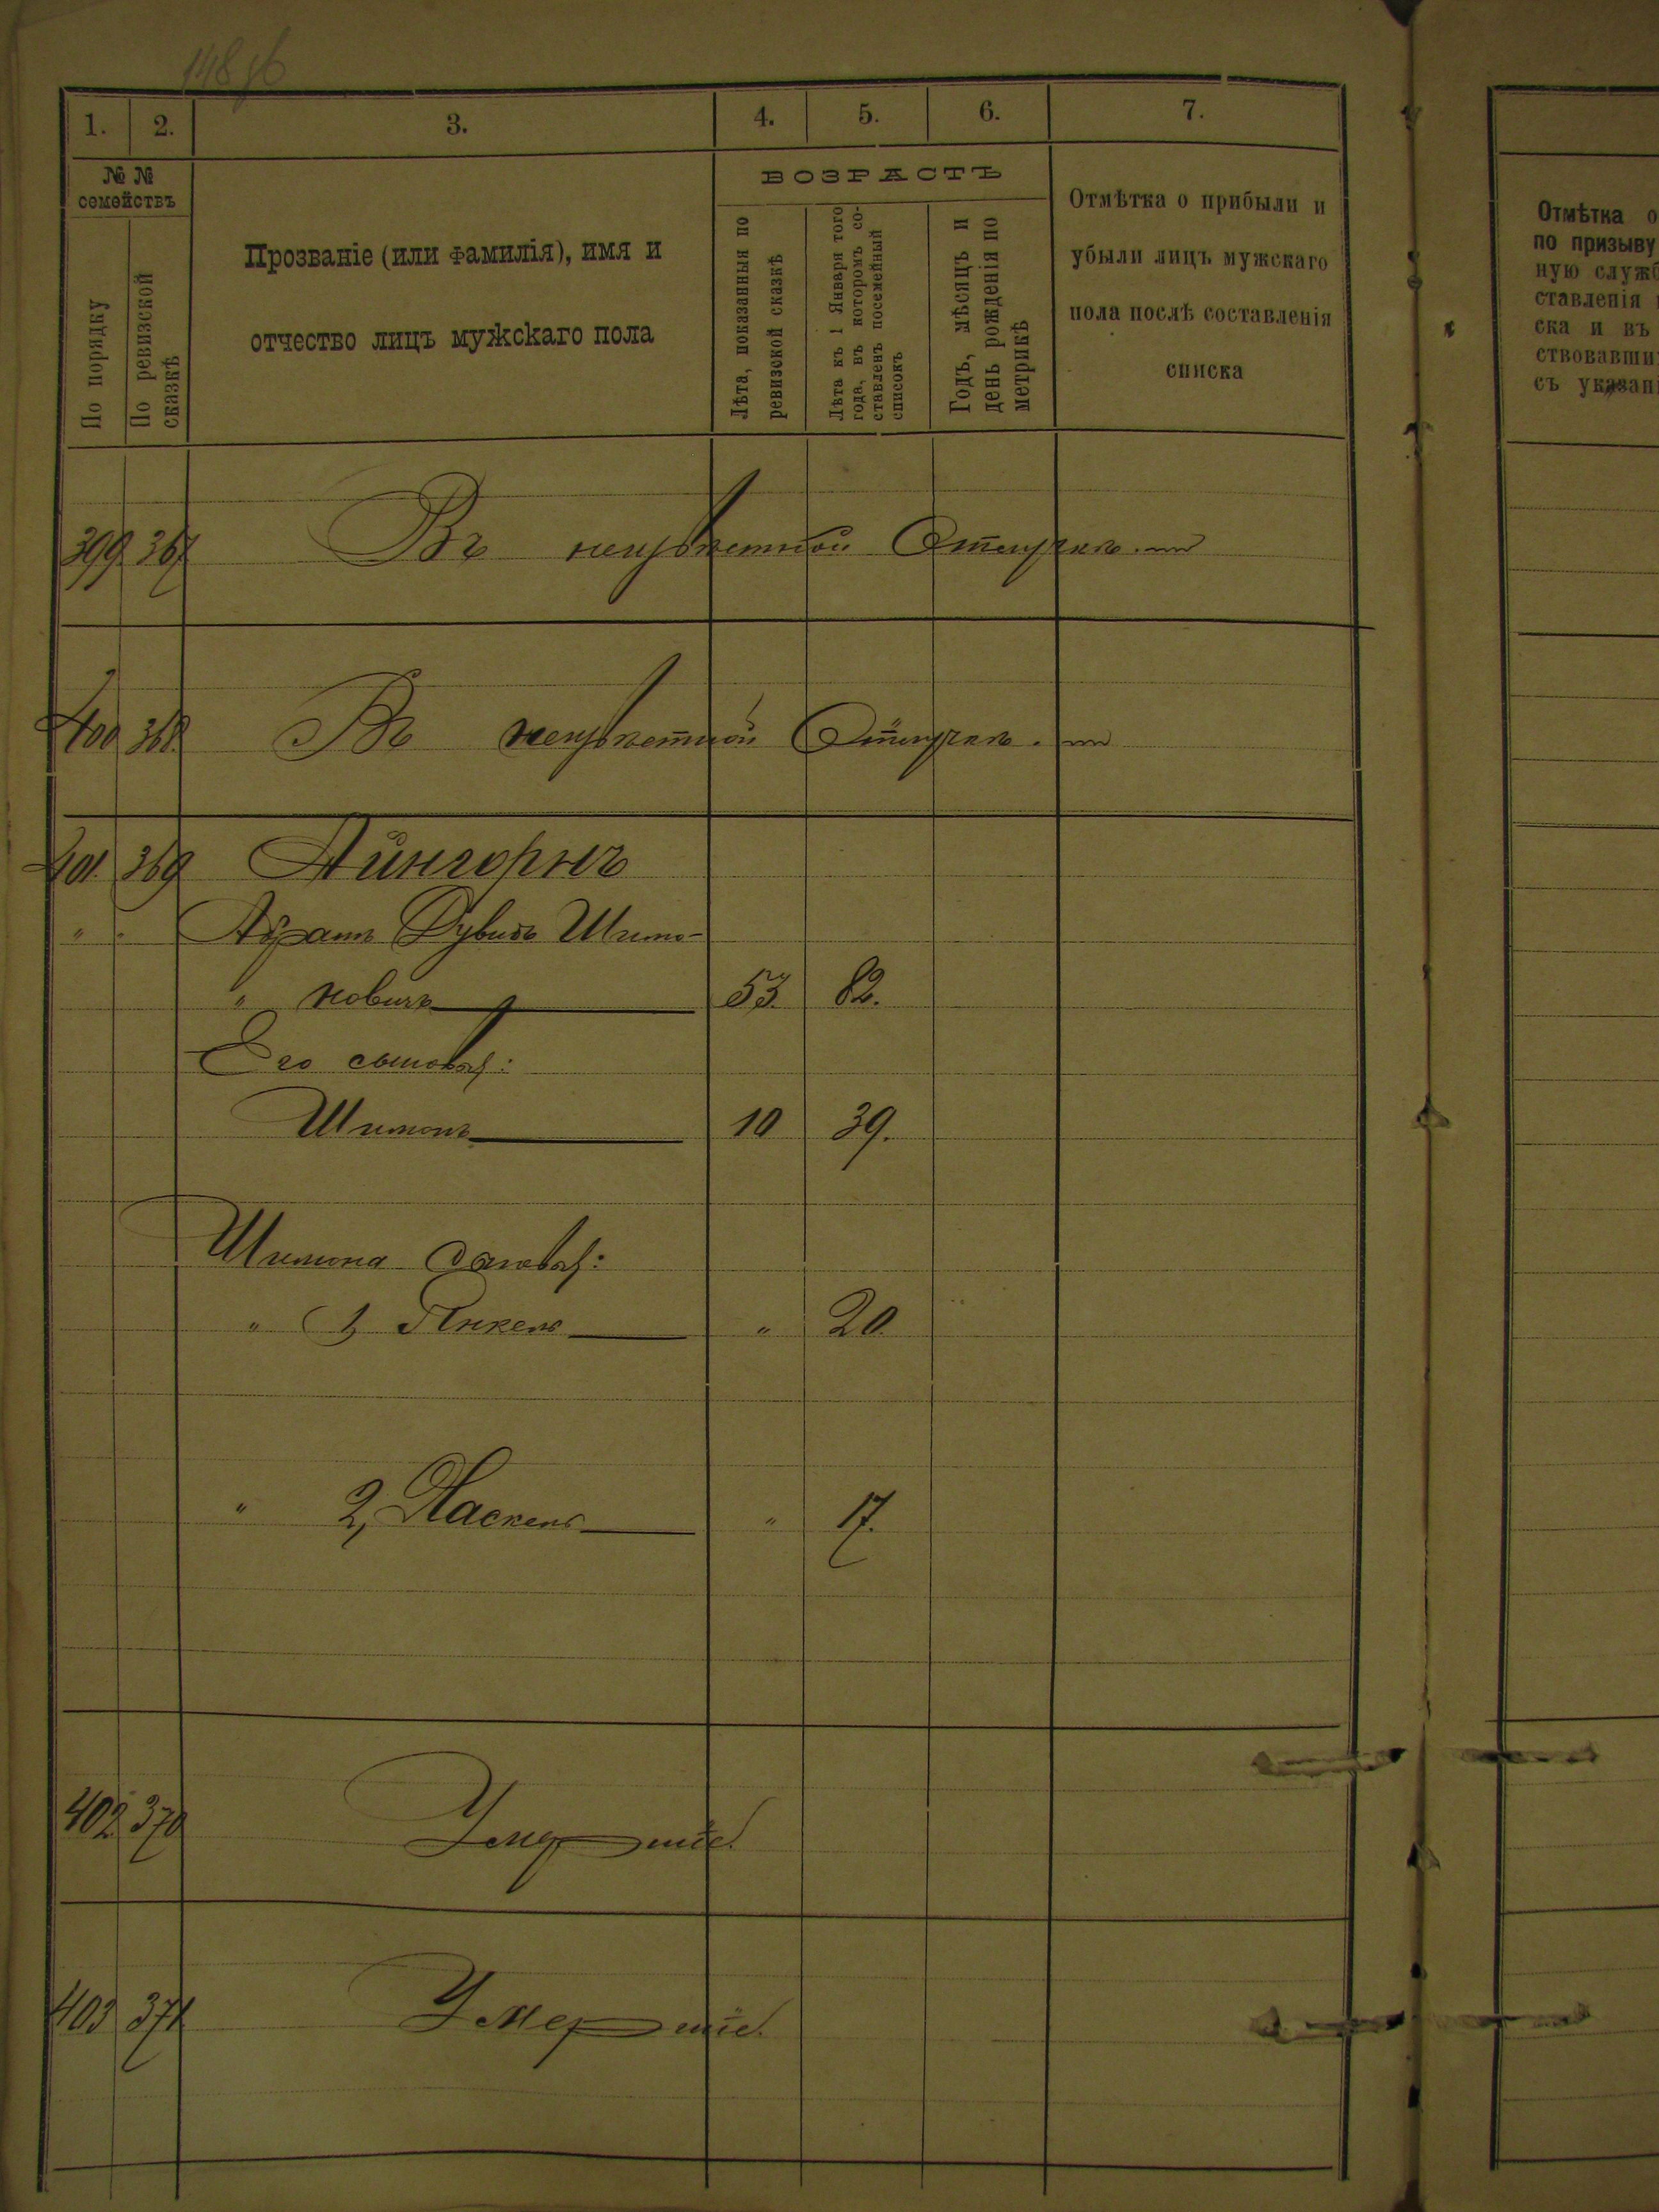 148 об
1. 2. 3. 4. 5. 6. 7.
№ №
семействъ
По порядку
По ревизской
сказкѣ
Прозваніе (или фамилія), имя и
отчество лицъ мужскаго пола
ВОЗРАСТЪ
Лѣта, показанныя по
ревизской сказкѣ
Лѣта къ 1 Января того
года, въ которомъ со-
ставленъ посемейный
списокъ
Годъ, мѣсяцъ и
день рожденія по
метрикѣ
Отмѣтка о прибыли и
убыли лицъ мужскаго
пола послѣ составленія
списка
Отмѣтка о
по призыву
ную служб
ставленія
ска и въ
ствовавши
съ указан
399. 367. Въ неизвѣстной Отлучкѣ.
400 368. Въ неизвѣстной Отлучкѣ.
401 369 Айнгорнъ
" " Абрамъ Дувидъ Шимо-
" новичъ 53. 82.
Его сыновья:
Шимонъ 10 39.
Шимона сыновья:
" 1, Янкель " 20.
" 2, Хаскель " 17.
402. 370 Умершіе.
403 371 Умершіе.